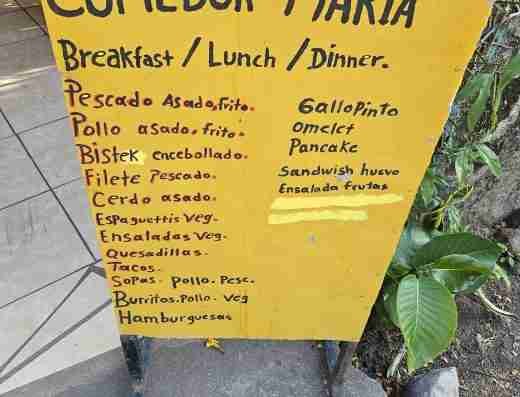 COMEDOR MARIA
Breakfast / Lunch / Dinner.
Pescado Asado, frito.
Pollo asado, frito.
Bistek encebollado.
Filete Pescado.
Cerdo asado.
Espaguettis Veg.
Ensaladas Veg.
Quesadillas.
Tacos.
Sopas. Pollo. Pesc.
Burritos. Pollo. Veg
Hamburguesas
GalloPinto
omelet
Pancake
Sandwish huevo
Ensalada frutas